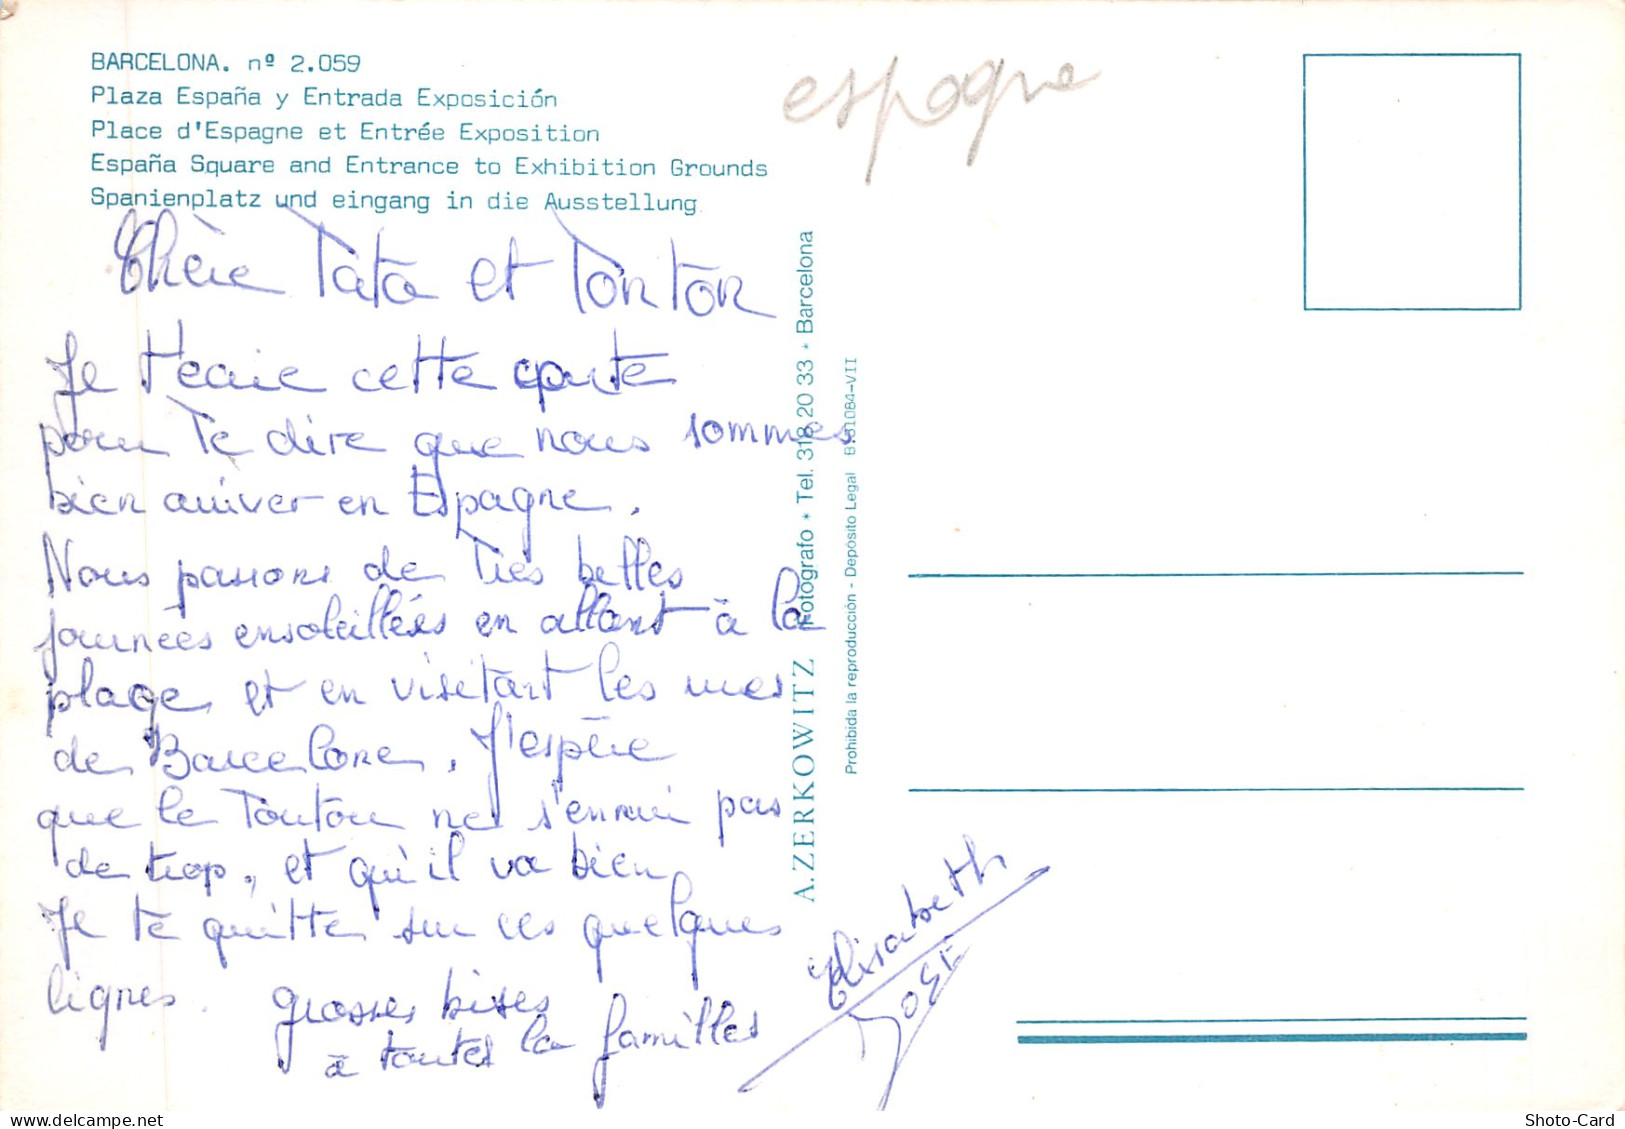 BARCELONA. nº 2.059
Plaza España y Entrada Exposición
Place d'Espagne et Entrée Exposition
España Square and Entrance to Exhibition Grounds
Spanienplatz und eingang in die Ausstellung
espagne
Chère Tata et Tonton
Je t'ecrie cette carte
pour te dire que nous sommes
bien arriver en Espagne.
Nous passons de très belles
journées ensoleillées en allant à la
plage et en visitant les rues
de Barcelone. J'espère
que le Tonton ne s'ennui pas
de trop, et qu'il va bien
Je te quitte sur ces quelques
lignes. grosses bises
à toutes la familles
Elisabeth
José
A. ZERKOWITZ Fotógrafo * Tel. 318 20 33 * Barcelona
Prohibida la reproducción - Depósito Legal B. 31084-VII
Shoto-Card